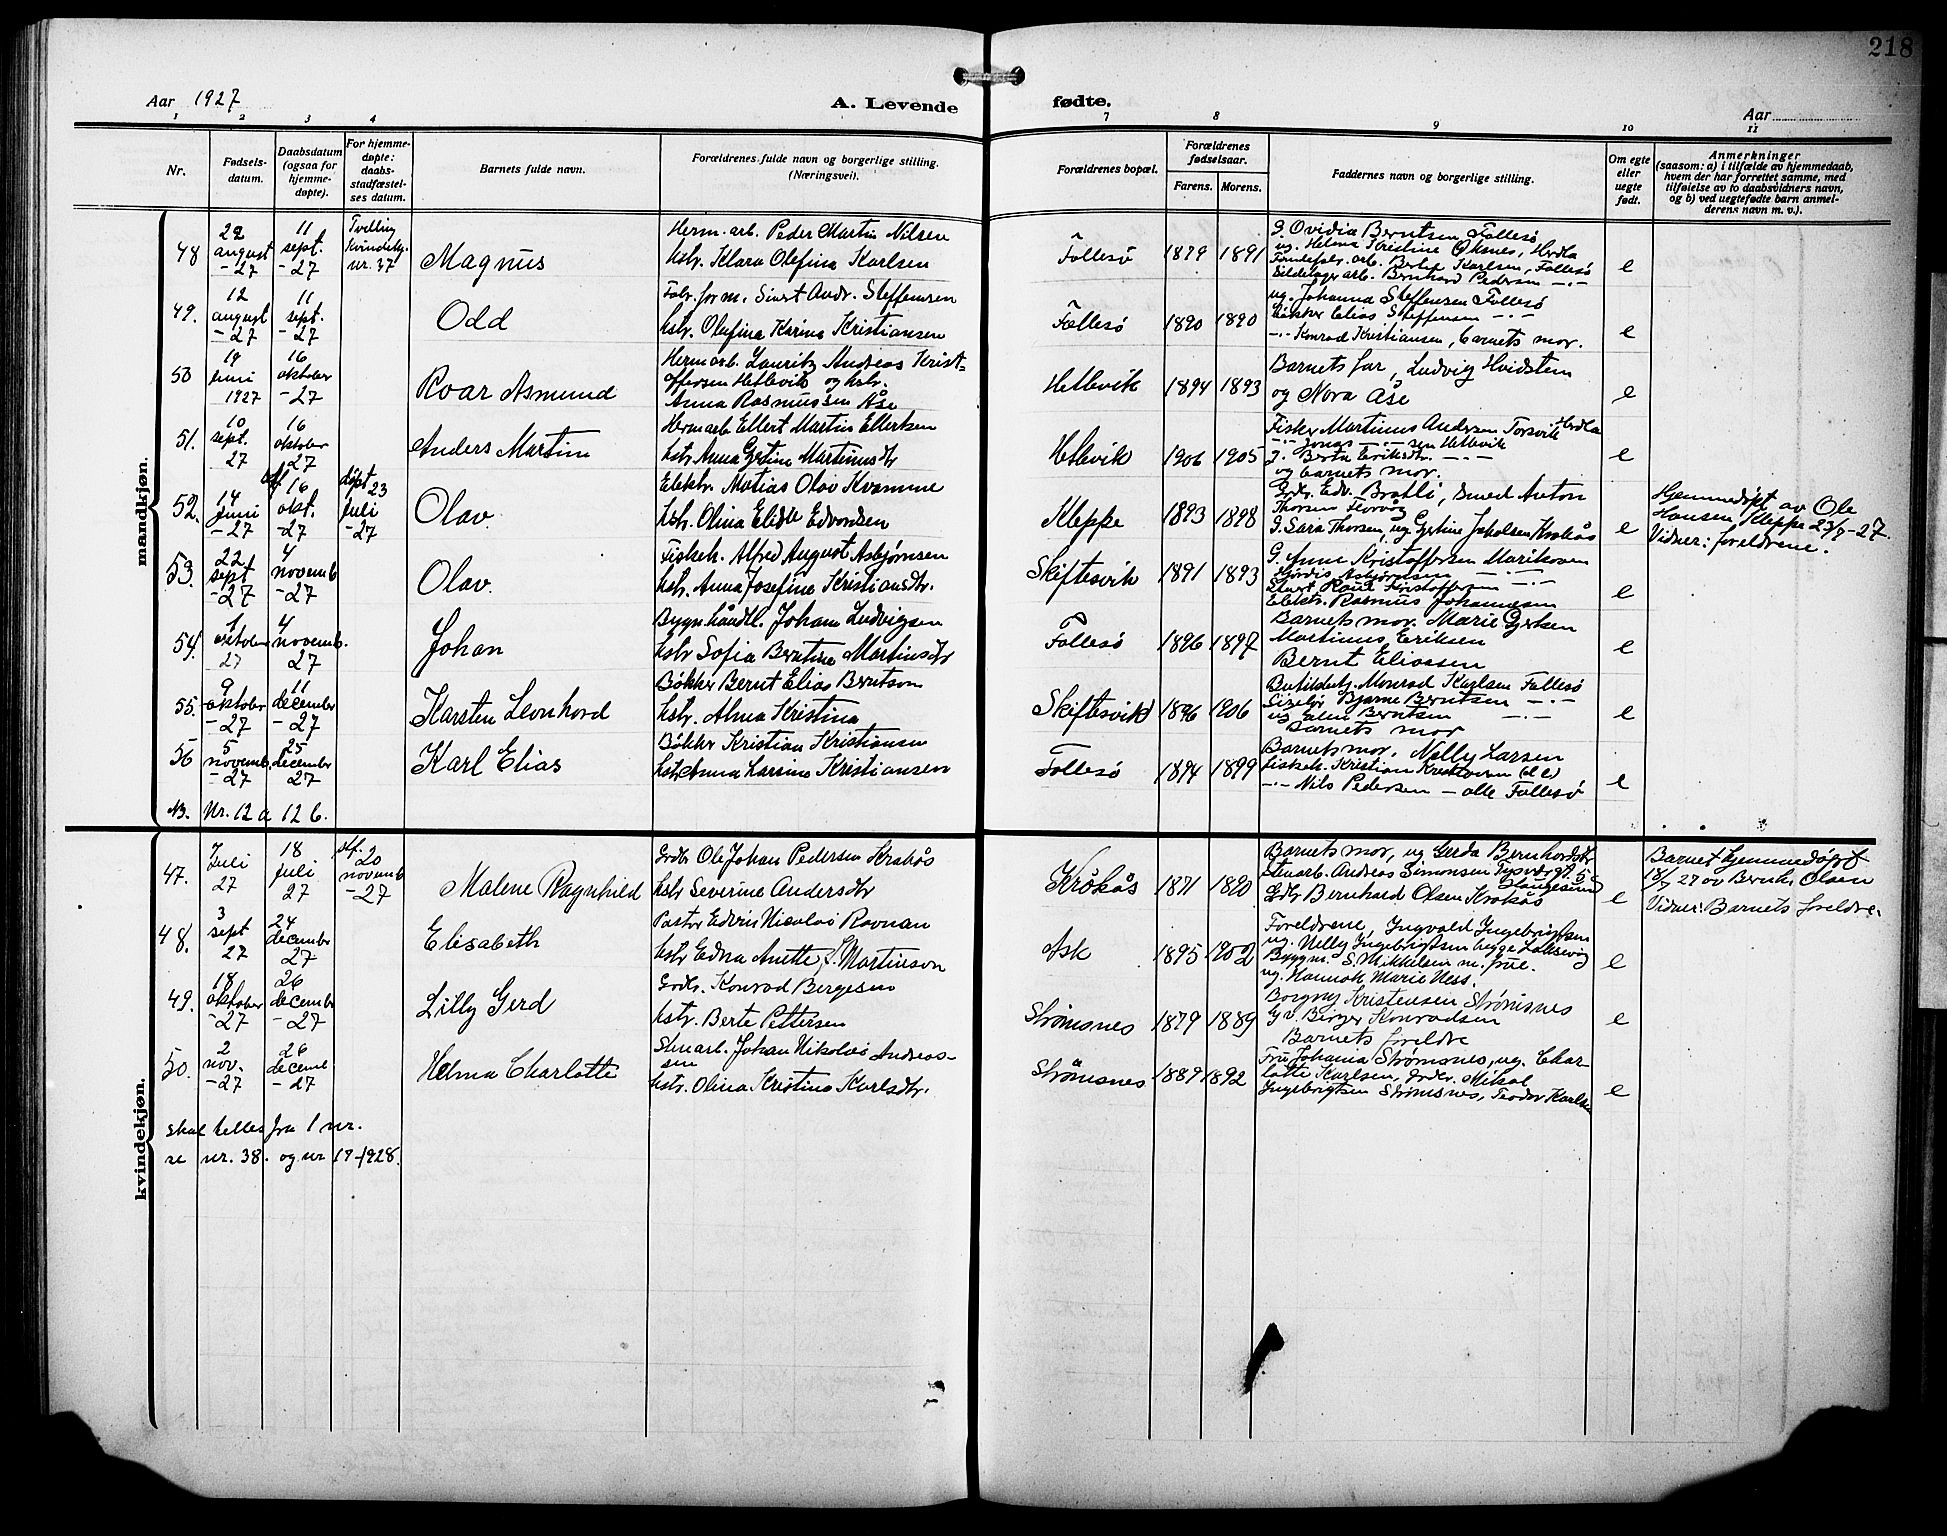 218
Aar 1927
A. Levende
fødte.
Aar
1 2 3 4 7 8 9 10 11
Nr.
Fødsels-
datum.
Daabsdatum
(ogsaa for
hjemme-
døpte).
For hjemme-
døpte:
daabs-
stadfæstel-
ses datum.
Barnets fulde navn.
Forældrenes fulde navn og borgerlige stilling.
(Næringsvei).
Forældrenes bopæl.
Forældrenes
fødselsaar.
Farens. Morens.
Faddernes navn og borgerlige stilling.
Om egte
eller
uegte
født.
Anmerkninger
(saasom: a) i tilfælde av hjemmedaab,
hvem der har forrettet samme, med
tilføielse av to daabsvidners navn,
og b) ved uegtefødte barn anmel-
derens navn m. v.).
mandkjøn.
48
22
august
-27
11
sept.
-27
Tvilling
kvindekj.
nr. 37
Magnus
Herm. arb. Peder Martin Nilsen
hstr. Klara Olefina Karlsen
Follesø
1879 1891
G. Ovidia Berntsen Follesø
ug. Helma Kristine Øksnes, Herdla
arb. Berte Karlsen, Follesø
arb. Bernhard Pedersen -"-
e
49.
12
august
-27
11
sept.
-27
Odd
Fabr. form. Sivert Andr. Steffensen
hstr. Olefina Karina Kristiansen
Follesø
1890 1890
ug. Johanna Steffensen Follesø
Elias Steffensen -"-
-"- Konrad Kristiansen, barnets mor.
e
50
19
juni
1927
16
oktober
-27
Roar Asmund
Herm arb. Lauritz Andreas Krist-
offersen Hetlevik og hstr.
Anna Rasmussen Åse
Hetlevik
1894 1893
Barnets far, Ludvig Hvidsten
og Nora Åse
e
51.
10
sept.
27
16
oktober
27
Anders Martin
Herm arb Ellert Martin Ellertsen
hstr Anna Gjertine Martinusdtr
Hetlevik
1906 1905
Fisker Martinus Andersen Torsvik Herdla
-"- Jonas -"-sen Hetlevik
G. Berta Eriksdtr. -"-
og barnets mor.
e
52.
14
juni
-27
16
okt.
-27
døpt 23
juli
-27
Olav.
Elektr. Matias Olav Kvamme
hstr. Olina Elida Edvardsen
Kleppe
1893 1898
Grdr. Edv. Bratli, smed Anton
Thorsen Florvåg
G. Sara Thorsen, ug Gjertine Jakobsen Krokås
e
Hjemmedøpt av Ole
Hansen, Kleppe 23/7-27.
Vidner: foreldrene.
53.
22
sept
-27
4
novemb
-27
Olav.
Fiskeh. Alfred August Asbjørnsen
hstr. Anna Josefine Kristiansdtr.
Skiftesvik
1891 1893
G. Anne Kristoffersen Marikoven
Hjørdis Asbjørnsen -"-
Kristoffersen
Elektr. Rasmus Johannesen
e
54.
1
oktober
27
4
novemb.
27
Johan
Bygn.håndtl. Johan Ludvigsen
hstr Sofia Berntine Martinsdtr
Follesø
1896 1897
Barnets mor. Marie Gjertsen
Martinus Eriksen
Bernt Eliassen
e
55.
9
oktober
-27
11
december
-27
Karsten Leonhard
Bøkker Bernt Elias Berntsen
hstr. Alma Kristina
Skiftesvik
1896 1906
Monrad Karlsen Follesø
Bjarne Berntsen -"-
Berntsen -"-
Barnets mor
e
56
5
novemb.
-27
25
december
27
Karl Elias
Bøkker Kristian Kristiansen
hstr. Anna Larsine Kristiansen
Follesø
1894 1899
Barnets mor, Nelly Larsen
Fiskeh. Kristian Kristiansen
-"- Nils Pedersen - alle Follesø
e
NB. Nr. 12 a 12 b.
kvindekjøn.
47.
7
juli
27
18
juli
27
stf. 20
novemb
-27
Malene Ragnhild
Grdbr Ole Johan Pedersen Krokås
hstr Severine Andersdtr
Krökås
1871 1880
Barnets mor, ug Gerda Bernhardsdtr
Stuarb. Andreas Simonsen
Haugesund
Grdbr Bernhard Olsen Krokås
e
Barnet hjemmedøpt
18/7 27 av Bernh. Olsen
Vidner: Barnets foreldre.
48.
3
sept
27
24
december
27
Elisabeth
Pastor Edvin Nicolai Ravnan
hstr Edna Anette f. Martinson
Ask
1895 1902
Foreldrene, Ingvald Ingebrigtsen
ug. Nelly Ingebrigtsen begge Laksevåg
Byggm. S. Mikkelsen m. frue.
ug. Hannah Marie Ness.
e
49.
18
oktober
-27
26
december
-27
Lilly Gerd
Grdbr. Konrad Bergesen
hstr. Berte Pettersen
Strömsnes
1879 1889
Borgny Kristensen Strömsnes
G v. Birger Konradsen
Barnets foreldre
e
50.
2
nov.
-27
26
decemb
-27
Helma Charlotte
Stuarb. Johan Nikolai Andreas-
sen
hstr. Olina Kristina Karlsdtr.
Strömsnes
1889 1892
Fru Johanna Strömsnes, ug. Char-
lotte Karlsen, Grdbr. Mikal
Ingebrigtsen Strömsnes, Teodor Karlsen
e
skal telles fra 1 nr.
se nr. 38. og nr 17-1928.